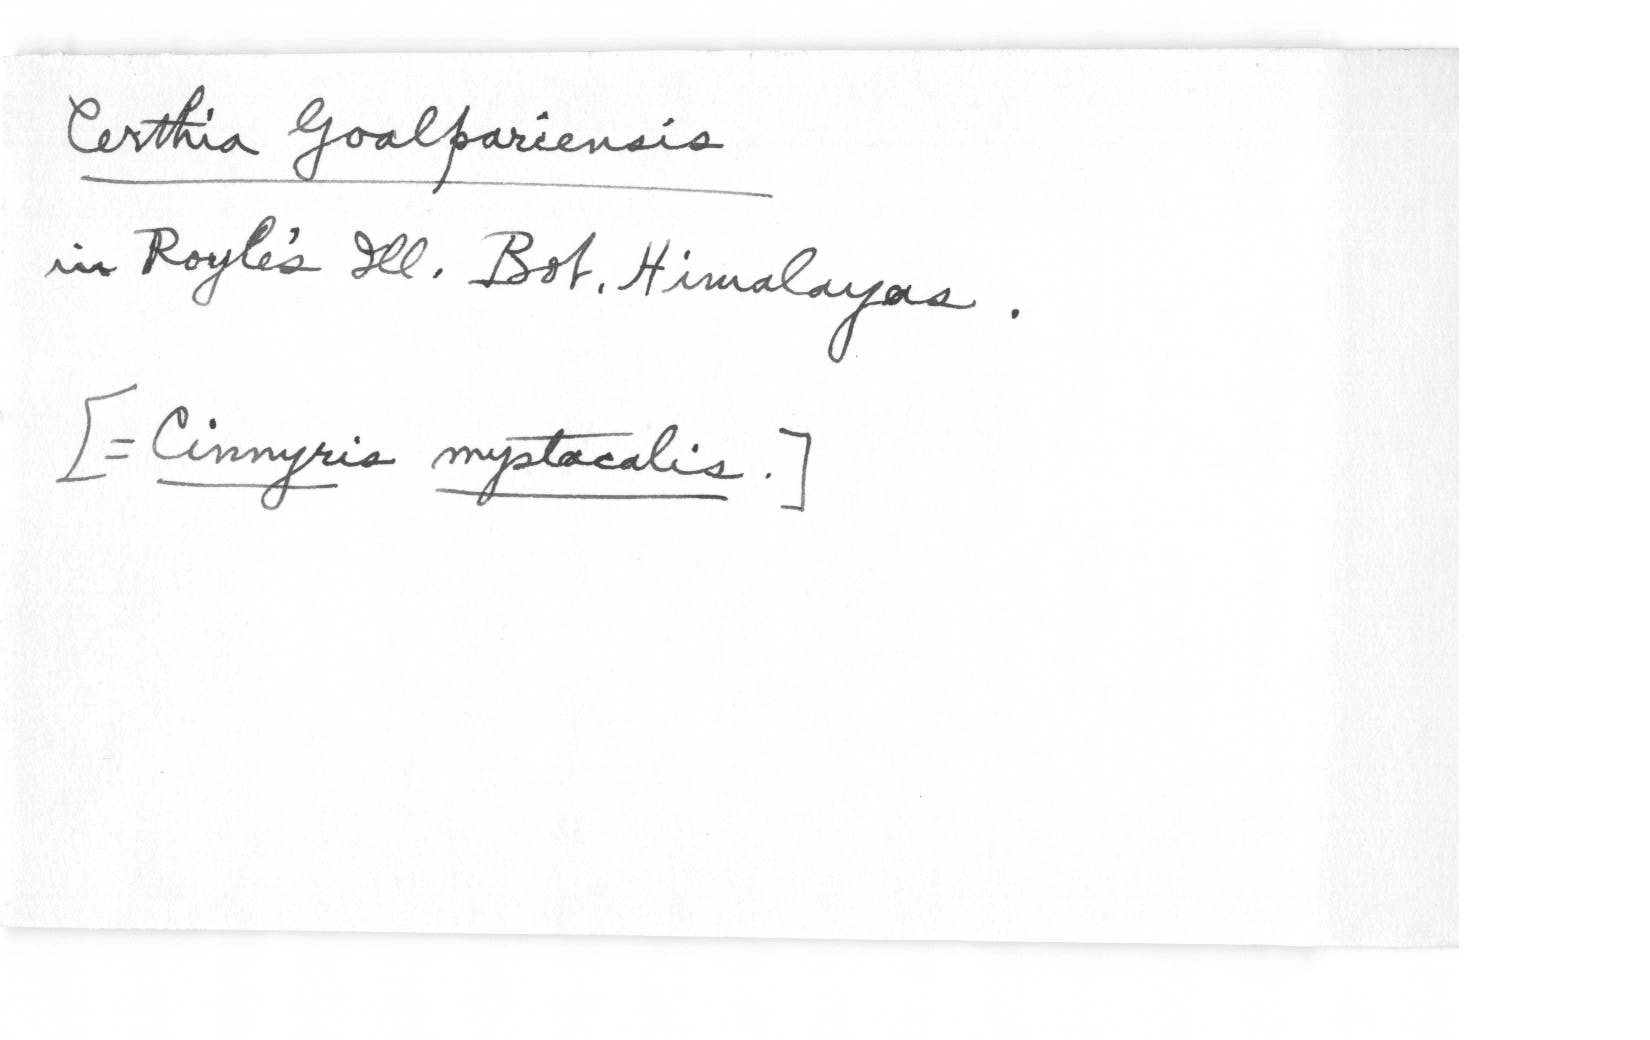 Certhia Goalpariensis
in Royle's Ill. Bot. Himalayas.
[= Cinnyris mystacalis.]